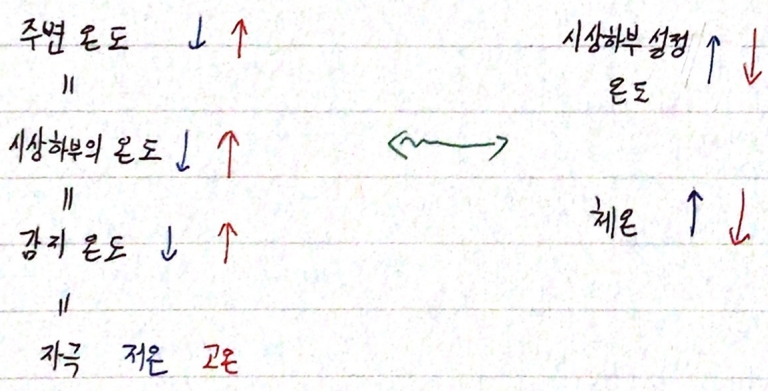 주변 온도 ↓ ↑
=
시상하부의 온도 ↓ ↑
=
감지 온도 ↓ ↑
=
자극 저온 고온
↔
시상하부 설정 ↑ ↓
온도
체온 ↑ ↓